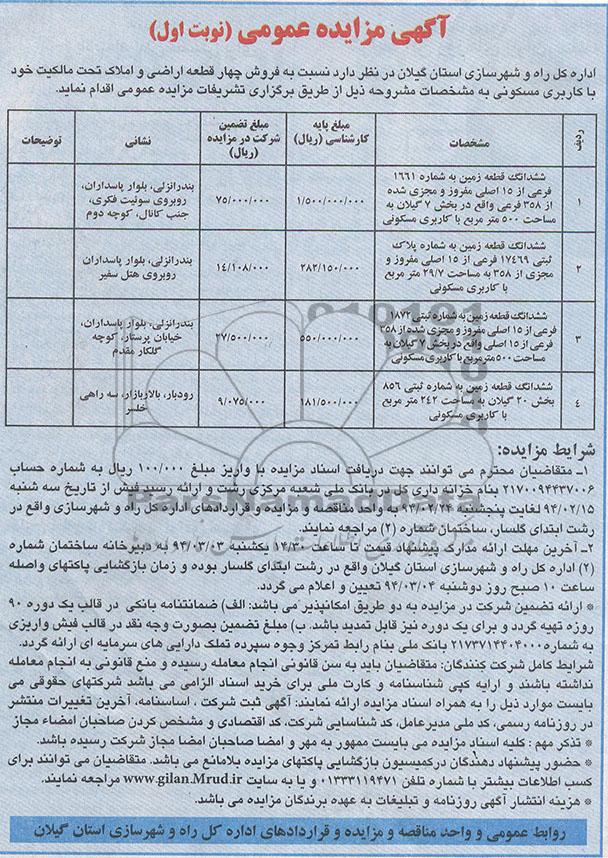 آگهی مزایده عمومی (نوبت اول)
اداره کل راه و شهرسازی استان گیلان در نظر دارد نسبت به فروش چهار قطعه اراضی و املاک تحت مالکیت خود
با کاربری مسکونی به مشخصات مشروحه ذیل از طریق برگزاری تشریفات مزایده عمومی اقدام نماید.
ردیف
مشخصات
مبلغ پایه
کارشناسی (ریال)
مبلغ تضمین
شرکت در مزایده
(ریال)
نشانی
توضیحات
۱
ششدانگ قطعه زمین به شماره ۱۶۶۱
فرعی از ۱۵ اصلی مفروز و مجزی شده
از ۳۵۸ فرعی واقع در بخش ۷ گیلان به
مساحت ۵۰۰ متر مربع با کاربری مسکونی
۱/۵۰۰/۰۰۰/۰۰۰
۷۵/۰۰۰/۰۰۰
بندرانزلی، بلوار پاسداران،
روبروی سوئیت فکری،
جنب کانال، کوچه دوم
۲
ششدانگ قطعه زمین به شماره پلاک
ثبتی ۱۷۴۶۹ فرعی از ۱۵ اصلی مفروز و
مجزی از ۳۵۸ به مساحت ۲۹/۷ متر مربع
با کاربری مسکونی
۲۸۲/۱۵۰/۰۰۰
۱۴/۱۰۸/۰۰۰
بندرانزلی، بلوار پاسداران
روبروی هتل سفیر
۳
ششدانگ قطعه زمین به شماره ثبتی ۱۸۷۲
فرعی از ۱۵ اصلی مفروز و مجزی شده از ۳۵۸
فرعی از ۱۵ اصلی واقع در بخش ۷ گیلان به
مساحت ۵۰۰ متر مربع با کاربری مسکونی
۵۵۰/۰۰۰/۰۰۰
۲۷/۵۰۰/۰۰۰
بندرانزلی، بلوار پاسداران،
خیابان پرستار، کوچه
گلکار مقدم
۴
ششدانگ قطعه زمین به شماره ثبتی ۸۵۶
بخش ۲۰ گیلان به مساحت ۲۴۲ متر مربع
با کاربری مسکونی
۱۸۱/۵۰۰/۰۰۰
۹/۰۷۵/۰۰۰
رودبار، بالابازار، سه راهی
خلسر
شرایط مزایده:
۱ـ متقاضیان محترم می توانند جهت دریافت اسناد مزایده با واریز مبلغ ۱۰۰/۰۰۰ ریال به شماره حساب
۲۱۷۰۰۹۴۴۳۷۰۰۶ بنام خزانه داری کل در بانک ملی شعبه مرکزی رشت و ارائه رسید فیش از تاریخ سه شنبه
۹۴/۰۲/۱۵ لغایت پنجشنبه ۹۴/۰۲/۲۴ به واحد مناقصه و مزایده و قراردادهای اداره کل راه و شهرسازی واقع در
رشت ابتدای گلسار، ساختمان شماره (۲) مراجعه نمایند.
۲ـ آخرین مهلت ارائه مدارک پیشنهاد قیمت تا ساعت ۱۴:۳۰ یکشنبه ۹۴/۰۳/۰۳ به دبیرخانه ساختمان شماره
(۲) اداره کل راه و شهرسازی استان گیلان واقع در رشت ابتدای گلسار بوده و زمان بازگشایی پاکتهای واصله
ساعت ۱۰ صبح روز دوشنبه ۹۴/۰۳/۰۴ تعیین و اعلام می گردد.
* ارائه تضمین شرکت در مزایده به دو طریق امکانپذیر می باشد: الف) ضمانتنامه بانکی در قالب یک دوره ۹۰
روزه تهیه گردد و برای یک دوره نیز قابل تمدید باشد. ب) مبلغ تضمین بصورت وجه نقد در قالب فیش واریزی
به شماره ۲۱۷۳۷۱۴۴۰۴۰۰۰ بانک ملی بنام رابط تمرکز وجوه سپرده تملک دارایی های سرمایه ای ارائه گردد.
شرایط کامل شرکت کنندگان: متقاضیان باید به سن قانونی انجام معامله رسیده و منع قانونی به انجام معامله
نداشته باشند و ارایه کپی شناسنامه و کارت ملی برای خرید اسناد الزامی می باشد شرکتهای حقوقی می
بایست موارد ذیل را به همراه اسناد مزایده ارائه نمایند: آگهی ثبت شرکت ، اساسنامه، آخرین تغییرات منتشر
در روزنامه رسمی، کد ملی مدیرعامل، کد شناسایی شرکت، کد اقتصادی و مشخص کردن صاحبان امضاء مجاز
* تذکر مهم : کلیه اسناد مزایده می بایست ممهور به مهر و امضا صاحبان امضا مجاز شرکت رسیده باشد.
* حضور پیشنهاد دهندگان درکمیسیون بازگشایی پاکتهای مزایده بلامانع می باشد. متقاضیان می توانند برای
کسب اطلاعات بیشتر با شماره تلفن ۰۱۳۳۳۱۱۹۴۷۱ و یا به سایت www.gilan.Mrud.ir مراجعه نمایند.
* هزینه انتشار آگهی روزنامه و تبلیغات به عهده برندگان مزایده می باشد.
روابط عمومی و واحد مناقصه و مزایده و قراردادهای اداره کل راه و شهرسازی استان گیلان